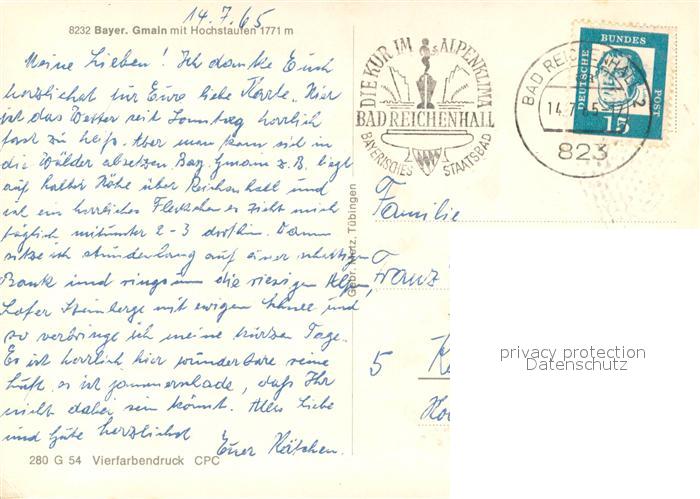 14.7.65
8232 Bayer. Gmain mit Hochstaufen 1771 m
Meine Lieben! Ich danke Euch
herzlichst für Eure liebe Karte. Hier
ist das Wetter seit Sonntag herrlich
fast zu heiß. Aber man kann sich in
die Wälder absetzen. Bay. Gmain z.B. liegt
auf halber Höhe über Reichenhall und
ist ein herrliches Fleckchen es zieht mich
täglich mitunter 2-3 dorthin. Dann
sitze ich stundenlang auf einer schattigen
Bank und ringsum die riesigen Alpen,
Lofer Steinberge mit ewigen Schnee und
so verbringe ich meine kurzen Tage.
Es ist herrlich hier wunderbare reine
Luft, es ist jammerschade, daß Ihr
nicht dabei sein könnt. Alles Liebe
und Gute herzlichst
Euer
280 G 54 Vierfarbendruck CPC
Gebr. Metz, Tübingen
DIE KUR IM ALPENKLIMA
BAD REICHENHALL
BAYERISCHES STAATSBAD
BAD REICHENHALL 2
14.7.65
823
DEUTSCHE BUNDES POST
15
Familie
Franz
5
privacy protection
Datenschutz